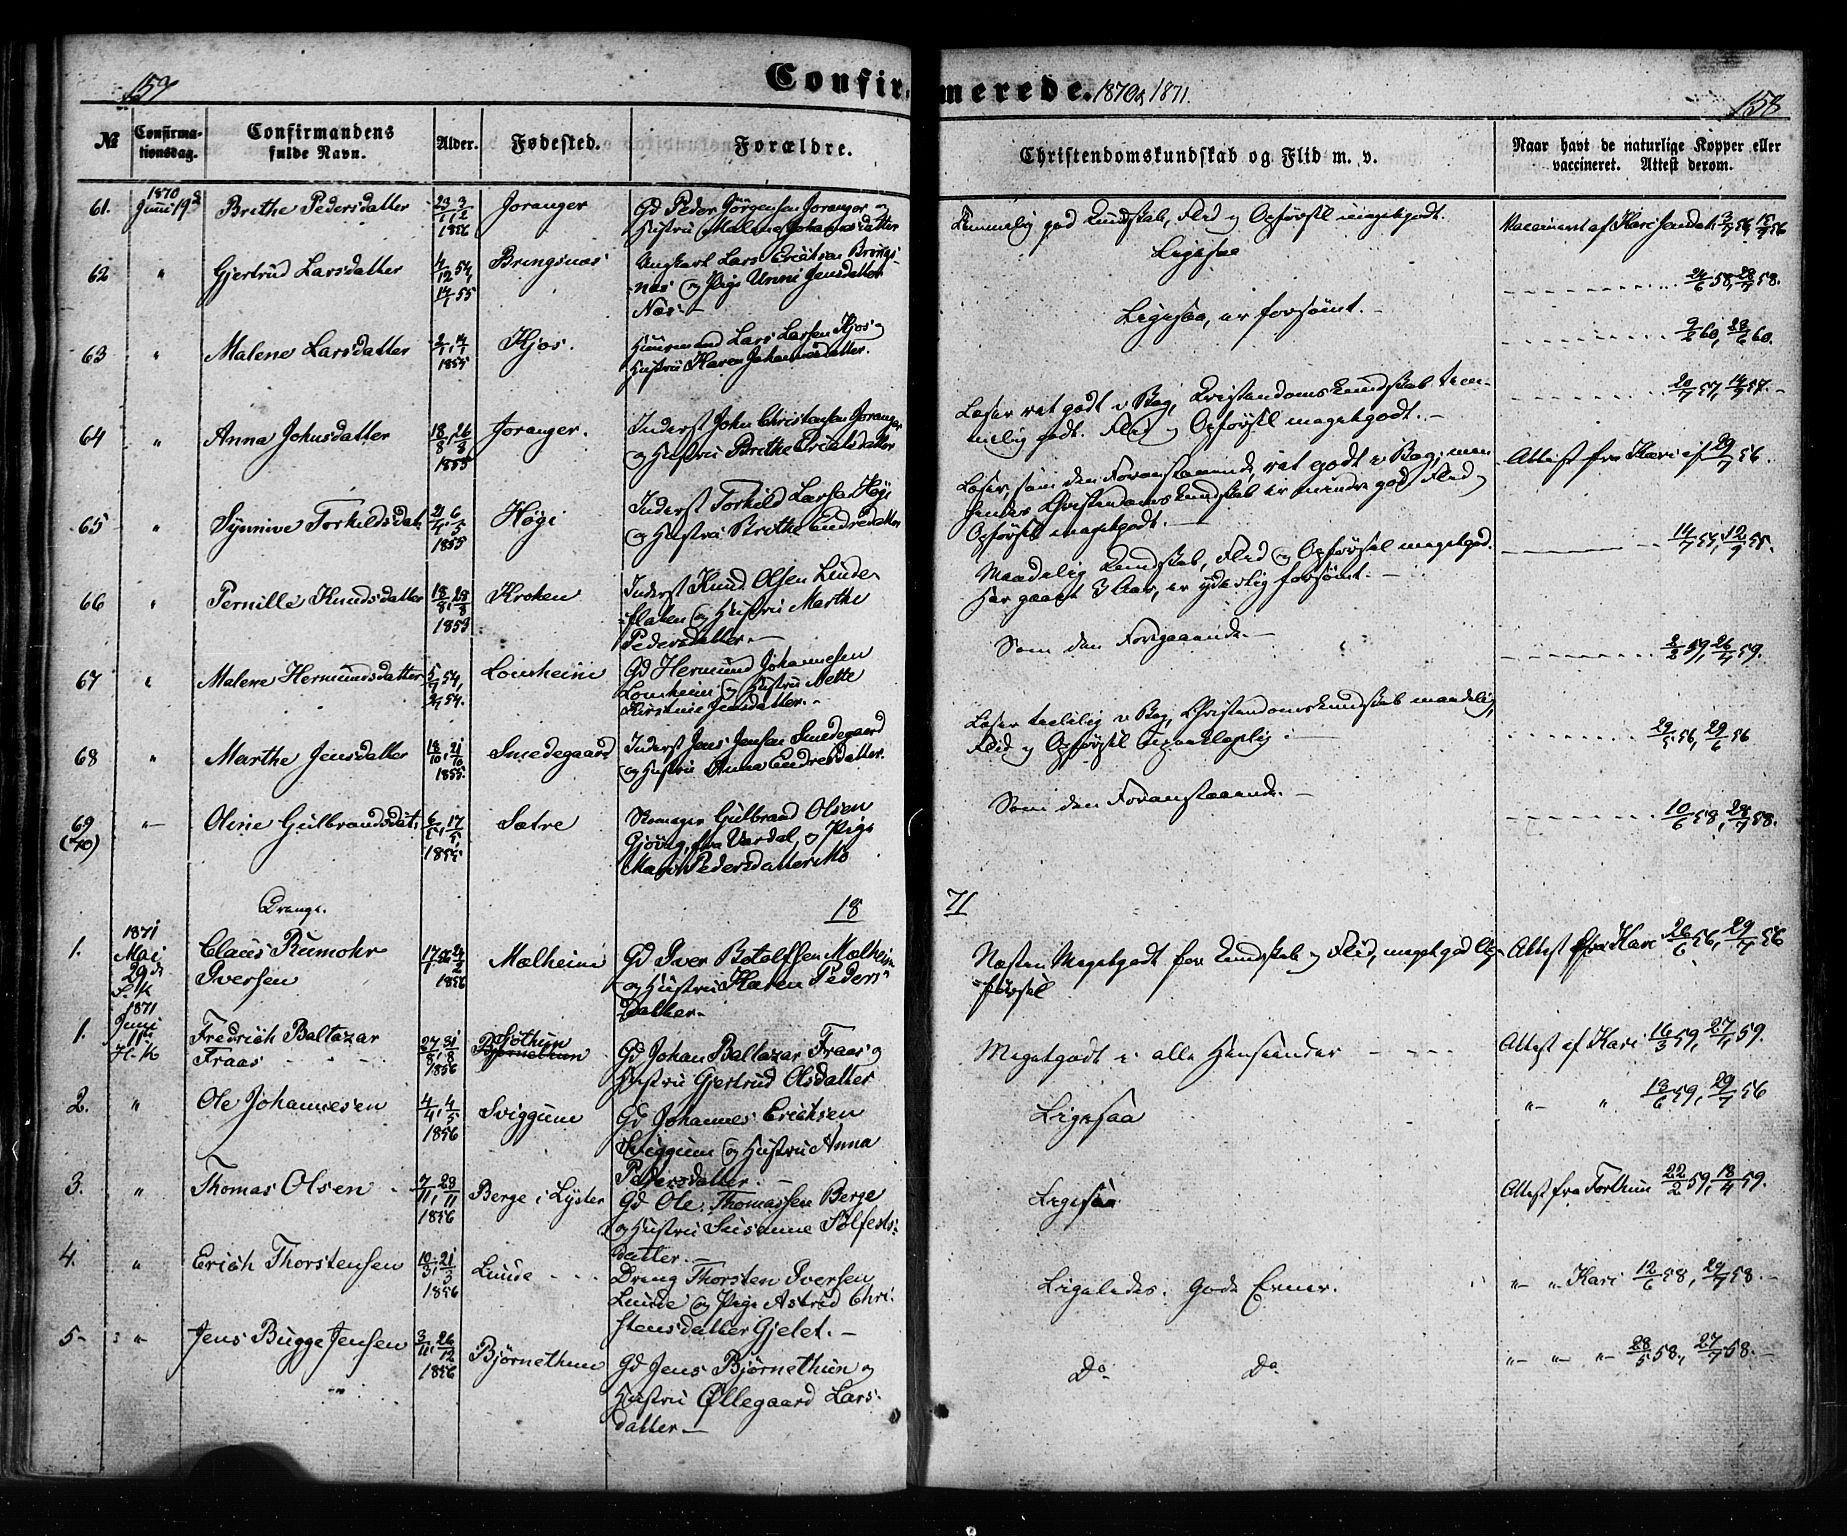 157
Confirmerede. 1870 & 1871.
158
№
Confirmationsdag.
Confirmandens fulde Navn.
Alder.
Fødested.
Forældre.
Christendomskundskab og Flid m. v.
Naar havt de naturlige Kopper eller vaccineret. Attest derom.
61. 1870 Juni 19 Brithe Pedersdatter 1856 Joranger
Gd Peder Jörgensen Joranger og
Hustru Malene Johannesdatter
Temmelig god Kundskab, Flid og Opförsel megetgodt.
62 " Gjertrud Larsdatter 4/12 54, 14/1 55 Bringsnæs
Ungkarl Lars Erichsen Brings-
næs og Pige Unni Jensdatter
Næs.-
Ligesaa
24/6 58, 28/7 58.
63 " Malene Larsdatter 1855 Kjos.
Huusmand Lars Larsen Kjos og
Hustru Karen Johannesdatter.
Ligesaa, er forsömt.-
64 " Anna Johnsdatter 18/8, 26/8 1855 Joranger.
Inderst John Christensen Joranger
og Hustru Brithe Erichsdatter
Læser ret godt i Bog, Kristendomskundskab tem-
melig godt. Flid og Opförsel megetgodt.-
20/7 57, 14/9 57.-
65 " Synnive Torkildsdat. 1855 Högi
Inderst Torkild Larsen Högi
og Hustru Brithe Endredatter
Læser, som den Foranstaaende, ret godt i Bog, men
hendes Christendomskundskab er mindre god. Flid og
Opförsel megetgodt.-
Attest fra Kari af 29/7 56.
66 " Pernille Knudsdatter 18/8, 28/8 1853 Kroken
Inderst Knud Olsen Linde-
flaten og Hustru Marthe
Pedersdatter.-
Maadelig Kundskab, Flid og Opförsel megetgod.
Har gaaet 3 Aar, er yderlig forsömt.-
67 " Malene Hermundsdatter Lomheim
Gd Hermund Johannesen
Lomheim og Hustru Mette
Kirstine Jensdatter.-
Som den Foregaaende.-
2/2 59, 26/7 59.
68 " Marthe Jensdatter 18/10, 21/10 1855. Smedegaard
Inderst Jens Jensen Smedegaard
og Hustru Anna Endresdatter.
Læser taalelig i Bog, Christendomskundskab maadelig,
Flid og Opförsel upaaklagelig.-
29/5 56, 29/6 56
69 (70) " Oline Gulbrandsdat. 1855 Sætre
Skomager Gulbrand Olsen
Gjövig, fra Vardal, og Pige
Mari Pedersdatter Mo
Som den Foranstaaende.-
10/6 58, 28/7 58.
Drenge.
18
71
1. 1871 Mai 29de Claus Rumohr Iversen 1856 Mælheim
Gd Iver Botolfsen Mælheim
og Hustru Karen Peders
datter.-
Næsten Megetgodt for Kundskab og Flid, megetgod Op-
försel
Attest fra Kari 26/6 56, 29/7 56
1. 1871 Juni 11te H.K Fredrich Baltazar Fraas 27/8, 31/8 1856 Bjørnethun Söthun
Gd Johan Baltazar Fraas og
Hustru Gjertrud Olsdatter
Megetgodt i alle Henseender
Attest af Kari 16/3 59, 27/7 59.
2. " Ole Johannesen 4/4, 4/5 1856 Sviggum
Gd Johannes Erichsen
Sviggum og Hustru Anna
Pedersdatter.-
Ligesaa
3. " Thomas Olsen 7/11, 28/11 1856 Berge i Lyster
Gd Ole Thomassen Berge
og Hustru Susanne Sölfests-
datter.-
Ligesaa
Attest fra Forthun 22/2 59, 18/4 59.
4. " Erich Thorstensen 10/3, 21/3 1856 Linde
Dreng Thorsten Iversen
Linde og Pige Astrid Chri-
stensdatter Gjelet.-
Ligeledes. Gode Evner.
" " Kari 12/6 58, 29/7 58.-
5- " Jens Bugge Jensen 3/11, 26/12 1856 Bjørnethun
Gd Jens Bjørnethun og
Hustru Øllegaard Lars-
datter.-
Do Do
" " " 28/5 58, 27/7 58.-